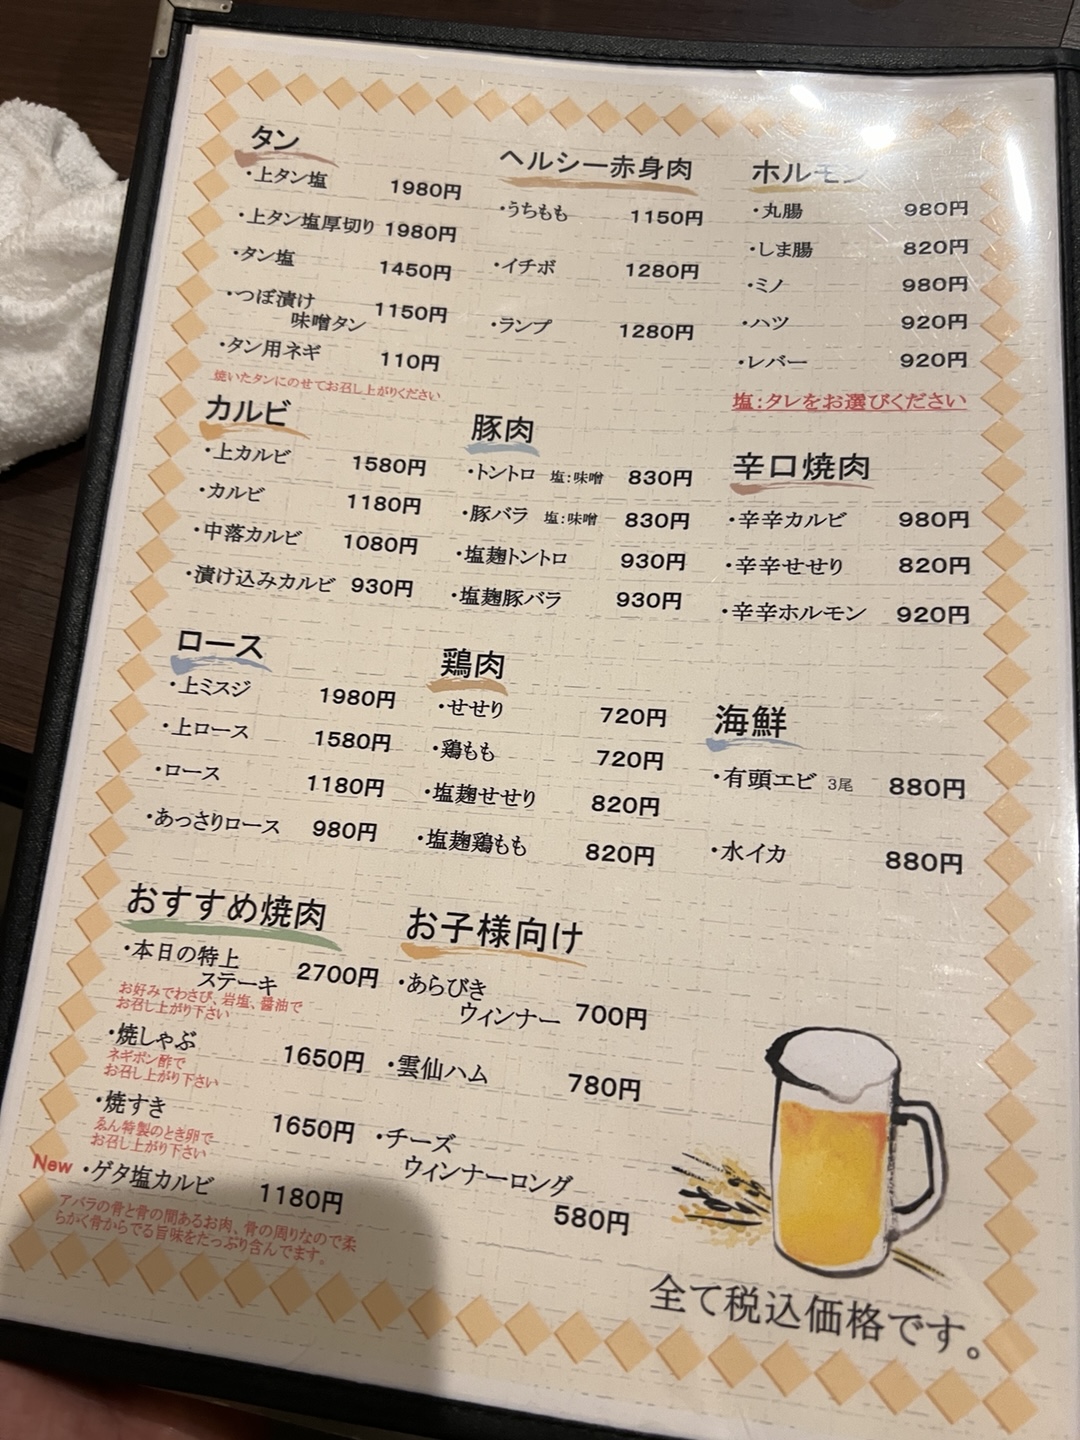 タン
・上タン塩 1980円
・上タン塩厚切り 1980円
・タン塩 1450円
・つぼ漬け
味噌タン 1150円
・タン用ネギ 110円
焼いたタンにのせてお召し上がりください
カルビ
・上カルビ 1580円
・カルビ 1180円
・中落カルビ 1080円
・漬け込みカルビ 930円
ロース
・上ミスジ 1980円
・上ロース 1580円
・ロース 1180円
・あっさりロース 980円
おすすめ焼肉
・本日の特上
ステーキ 2700円
お好みでわさび、岩塩、醤油で
お召し上がり下さい
・焼しゃぶ 1650円
ネギポン酢で
お召し上がり下さい
・焼すき 1650円
ゑん特製のとき卵で
お召し上がり下さい
New ・ゲタ塩カルビ 1180円
アバラの骨と骨の間あるお肉、骨の周りなので柔
らかく骨からでる旨味をたっぷり含んでます。
ヘルシー赤身肉
・うちもも 1150円
・イチボ 1280円
・ランプ 1280円
豚肉
・トントロ 塩：味噌 830円
・豚バラ 塩：味噌 830円
・塩麹トントロ 930円
・塩麹豚バラ 930円
鶏肉
・せせり 720円
・鶏もも 720円
・塩麹せせり 820円
・塩麹鶏もも 820円
お子様向け
・あらびき
ウィンナー 700円
・雲仙ハム 780円
・チーズ
ウィンナーロング
580円
ホルモン
・丸腸 980円
・しま腸 820円
・ミノ 980円
・ハツ 920円
・レバー 920円
塩：タレをお選びください
辛口焼肉
・辛辛カルビ 980円
・辛辛せせり 820円
・辛辛ホルモン 920円
海鮮
・有頭エビ 3尾 880円
・水イカ 880円
全て税込価格です。